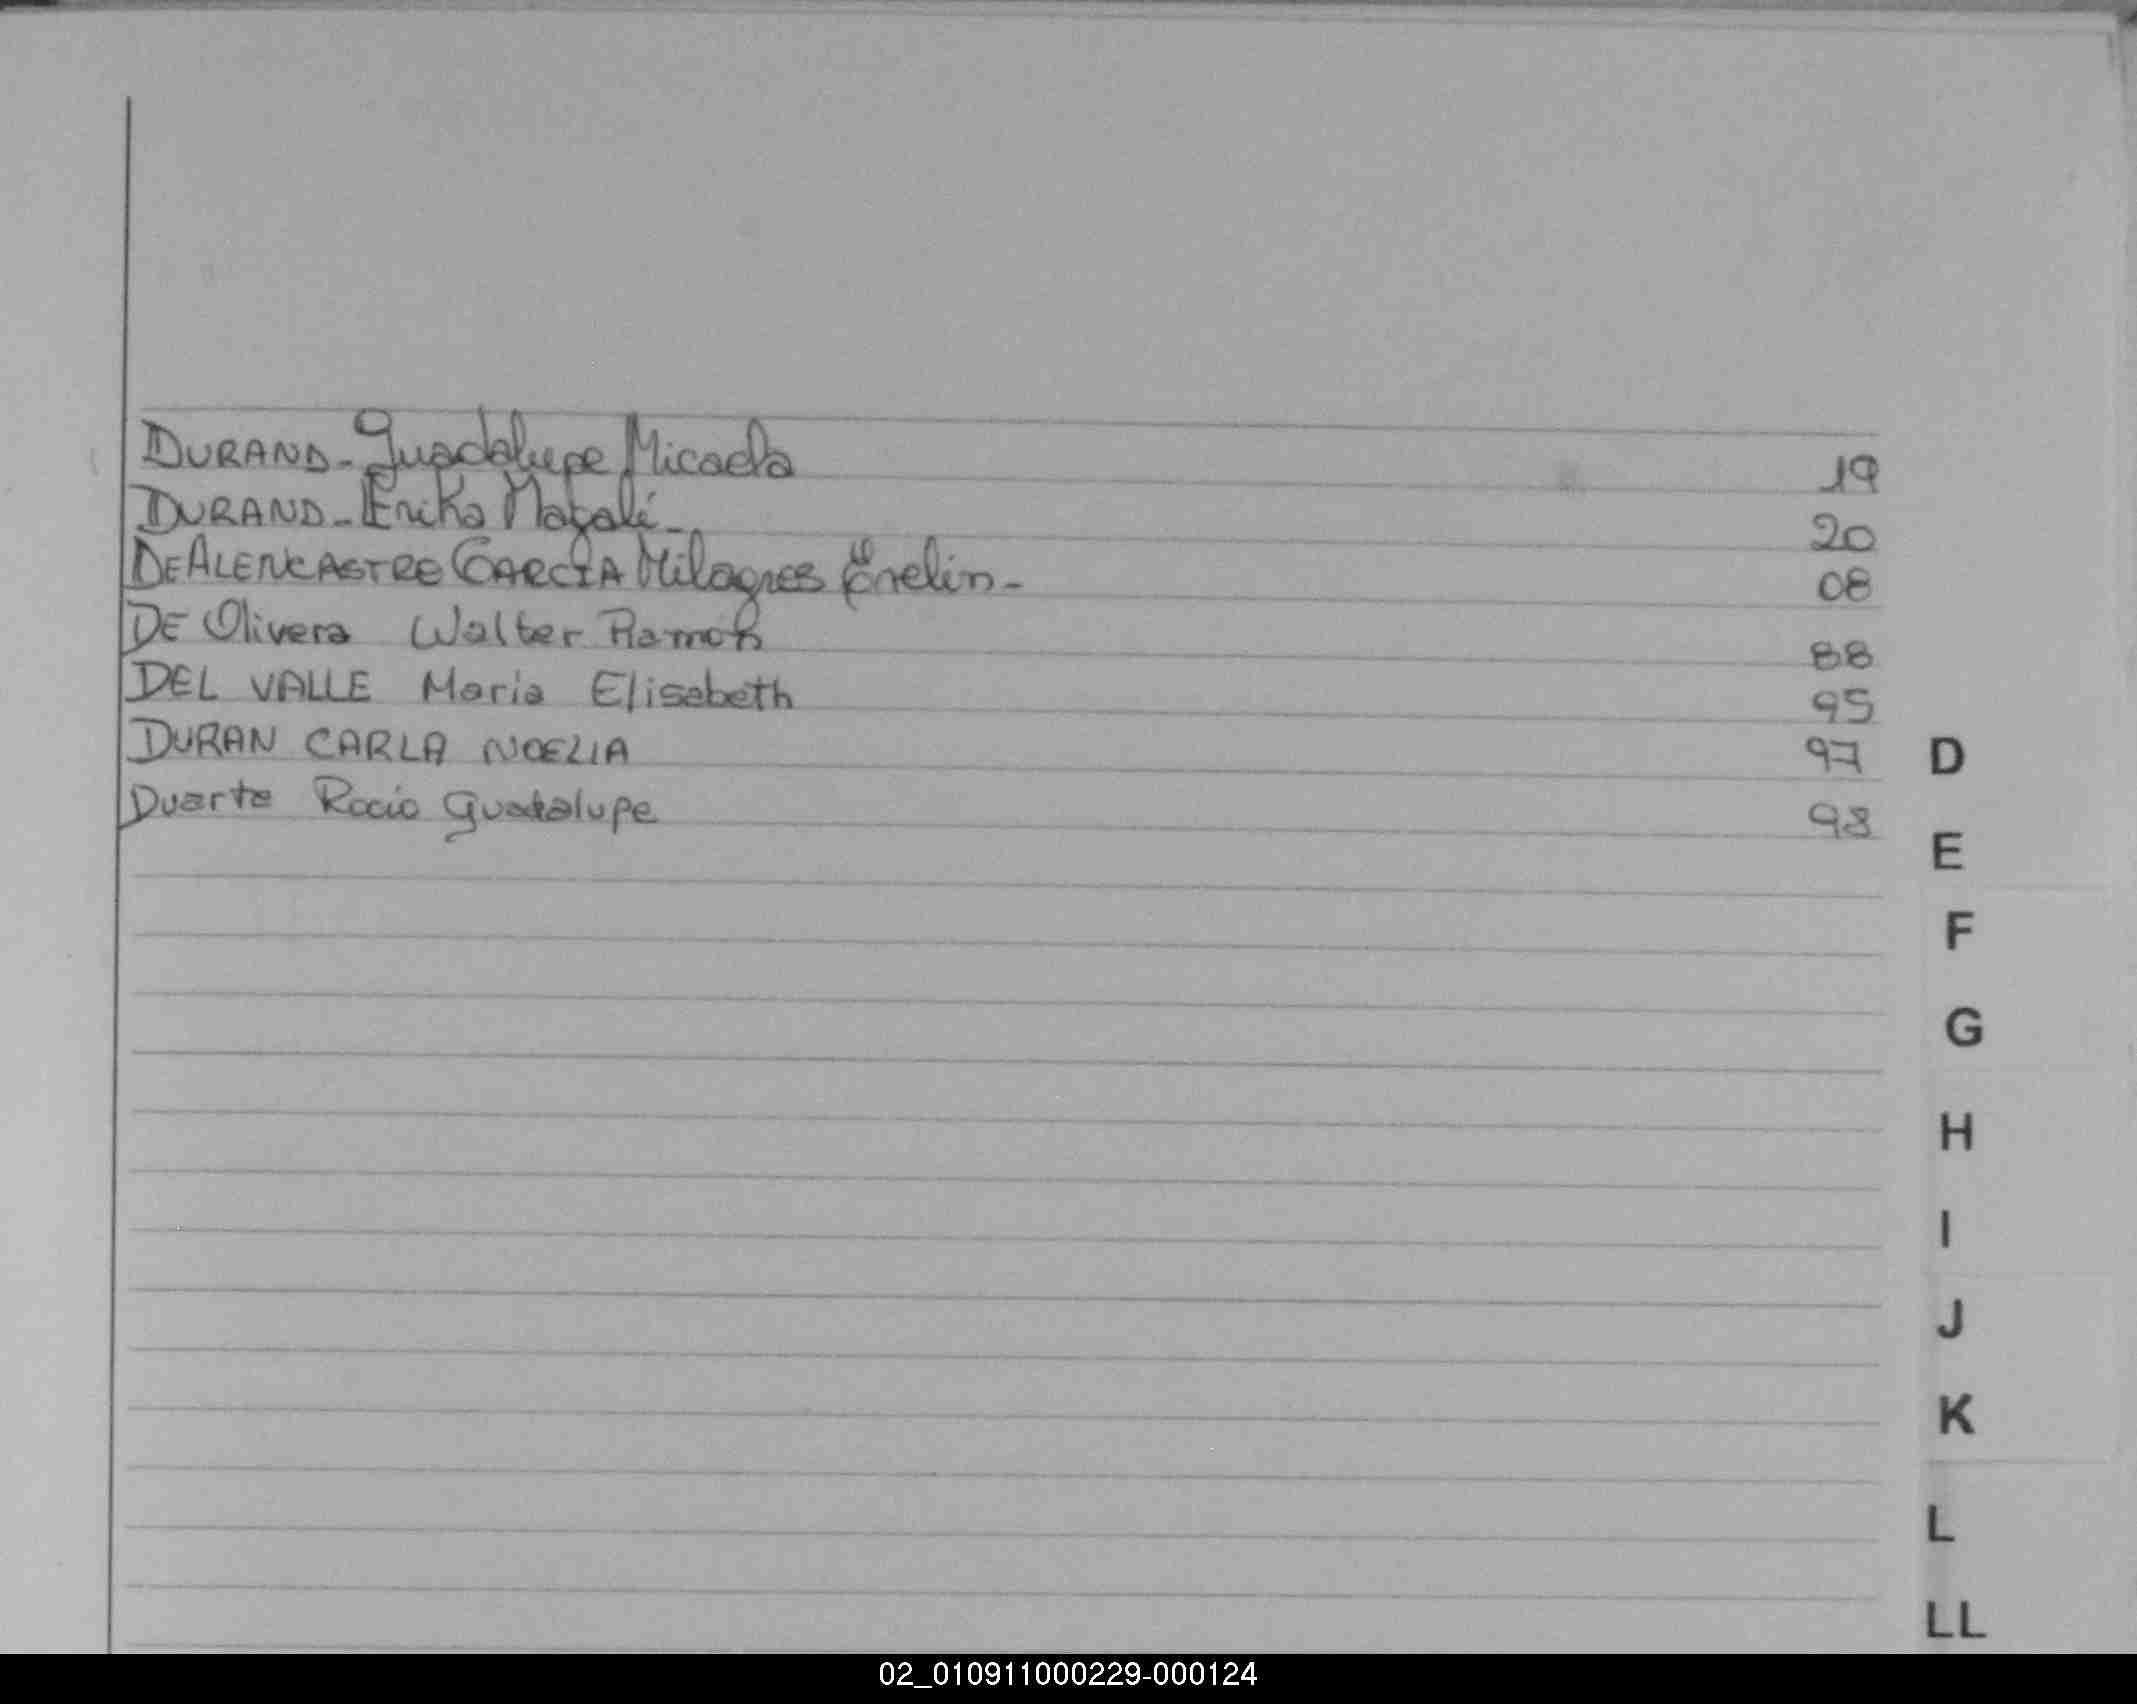 DURAND - Guadalupe Micaela 19
DURAND - Erika Magalí - 20
DE ALENCASTRE GARCÍA Milagros Evelin - 08
DE Olivera Walter Ramon 88
DEL VALLE Maria Elisabeth 95
DURAN CARLA NOELIA 97
D
Duarte Rocio Guadalupe 98
E
F
G
H
I
J
K
L
LL
02_010911000229-000124